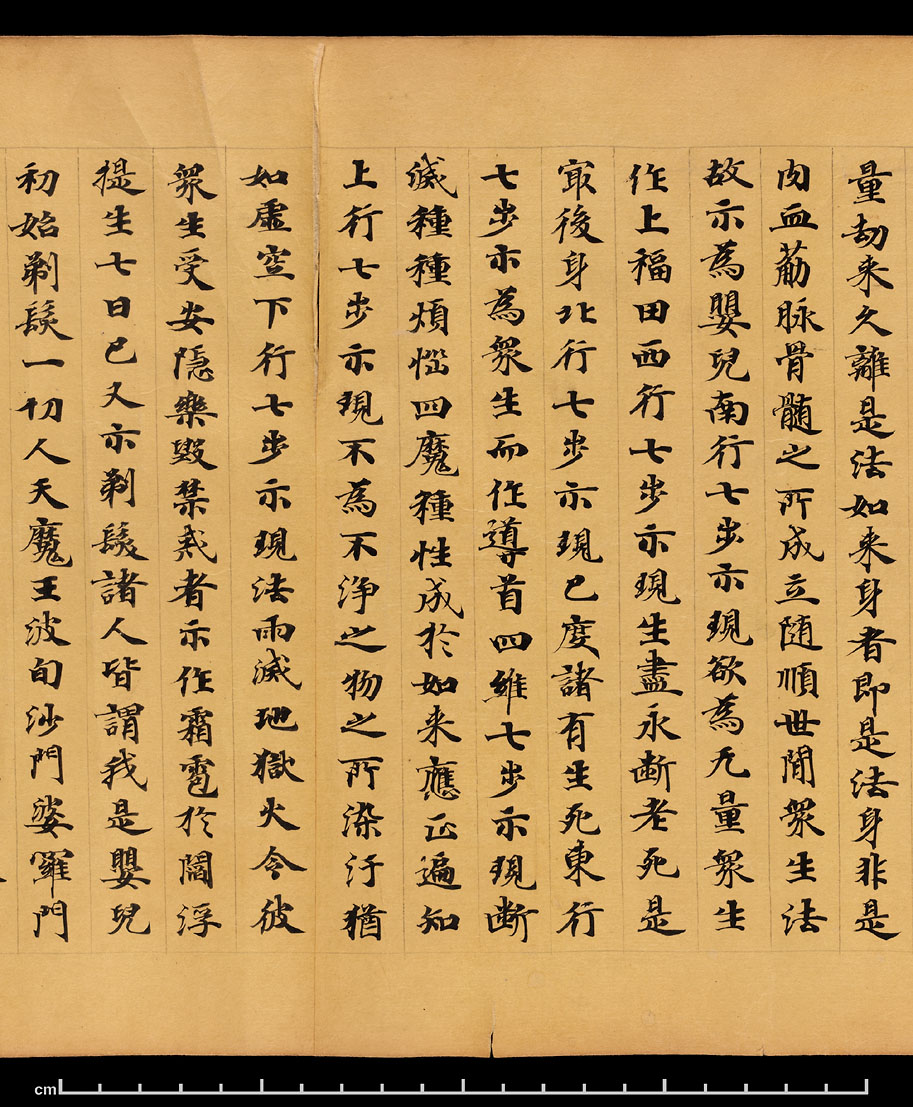 量劫来久離是法如来身者即是法身非是
肉血觔脉骨髓之所成立随順世間衆生法
故示為嬰兒南行七步示現欲為无量衆生
作上福田西行七步示現生盡永断老死是
寂後身北行七步示現已度諸有生死東行
七步示為衆生而作導首四維七步示現断
滅種種煩惱四魔種性成於如来應正遍知
上行七步示現不為不浄之物之所染汙猶
如虚空下行七步示現法雨滅地獄火令彼
衆生受安隠樂毀禁戒者示作霜雹於閻浮
提生七日已又示剃髮諸人皆謂我是嬰兒
初始剃髮一切人天魔王波旬沙門婆羅門